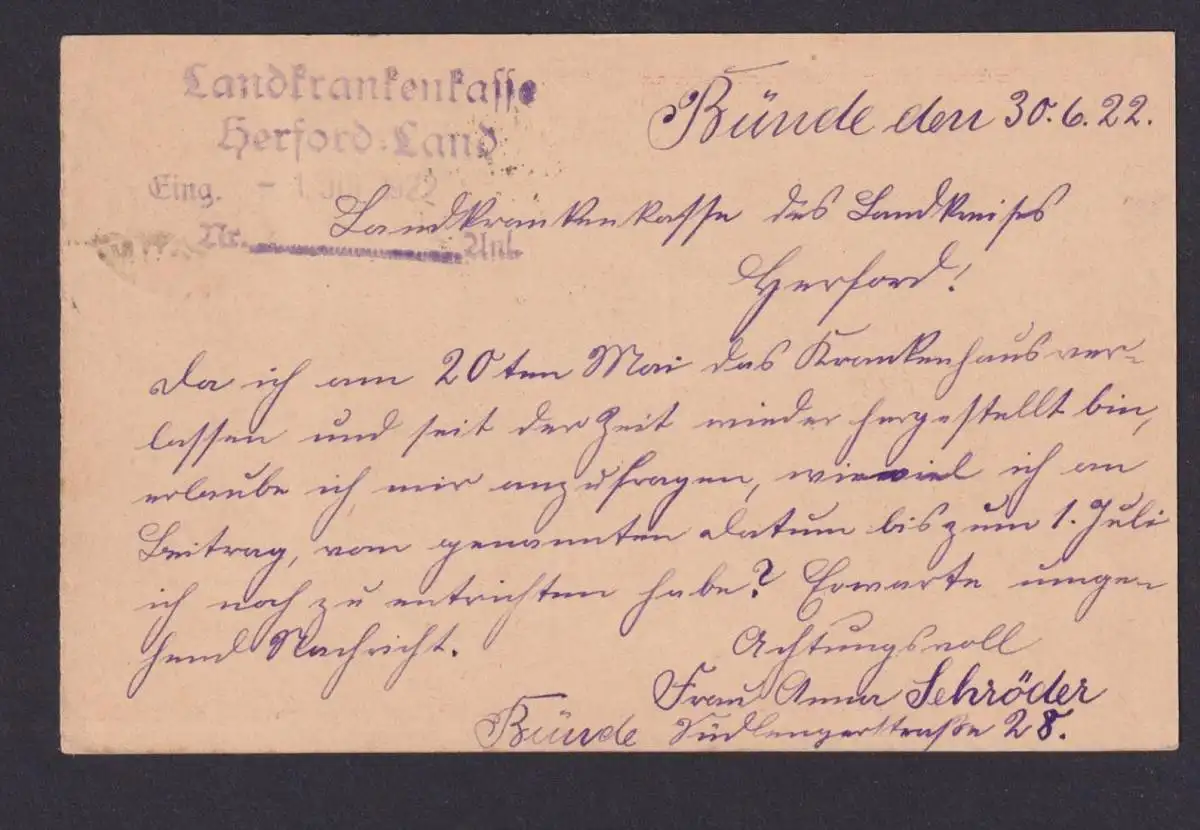 Landkrankenkasse
Herford-Land
Eing. - 1. Jul 1922
Nr. Anl.
Bünde den 30.6.22.
Landkrankenkasse des Landkreises
Herford!
Da ich am 20ten Mai das Krankenhaus ver-
lassen und seit der Zeit wieder hergestellt bin,
erlaube ich mir anzufragen, wieviel ich an
Beitrag, vom genannten Datum bis zum 1. Juli
ich noch zu entrichten habe? Erwarte umge-
hend Nachricht.
Achtungsvoll
Frau Anna Schröder
Bünde Südlengerstraße 28.